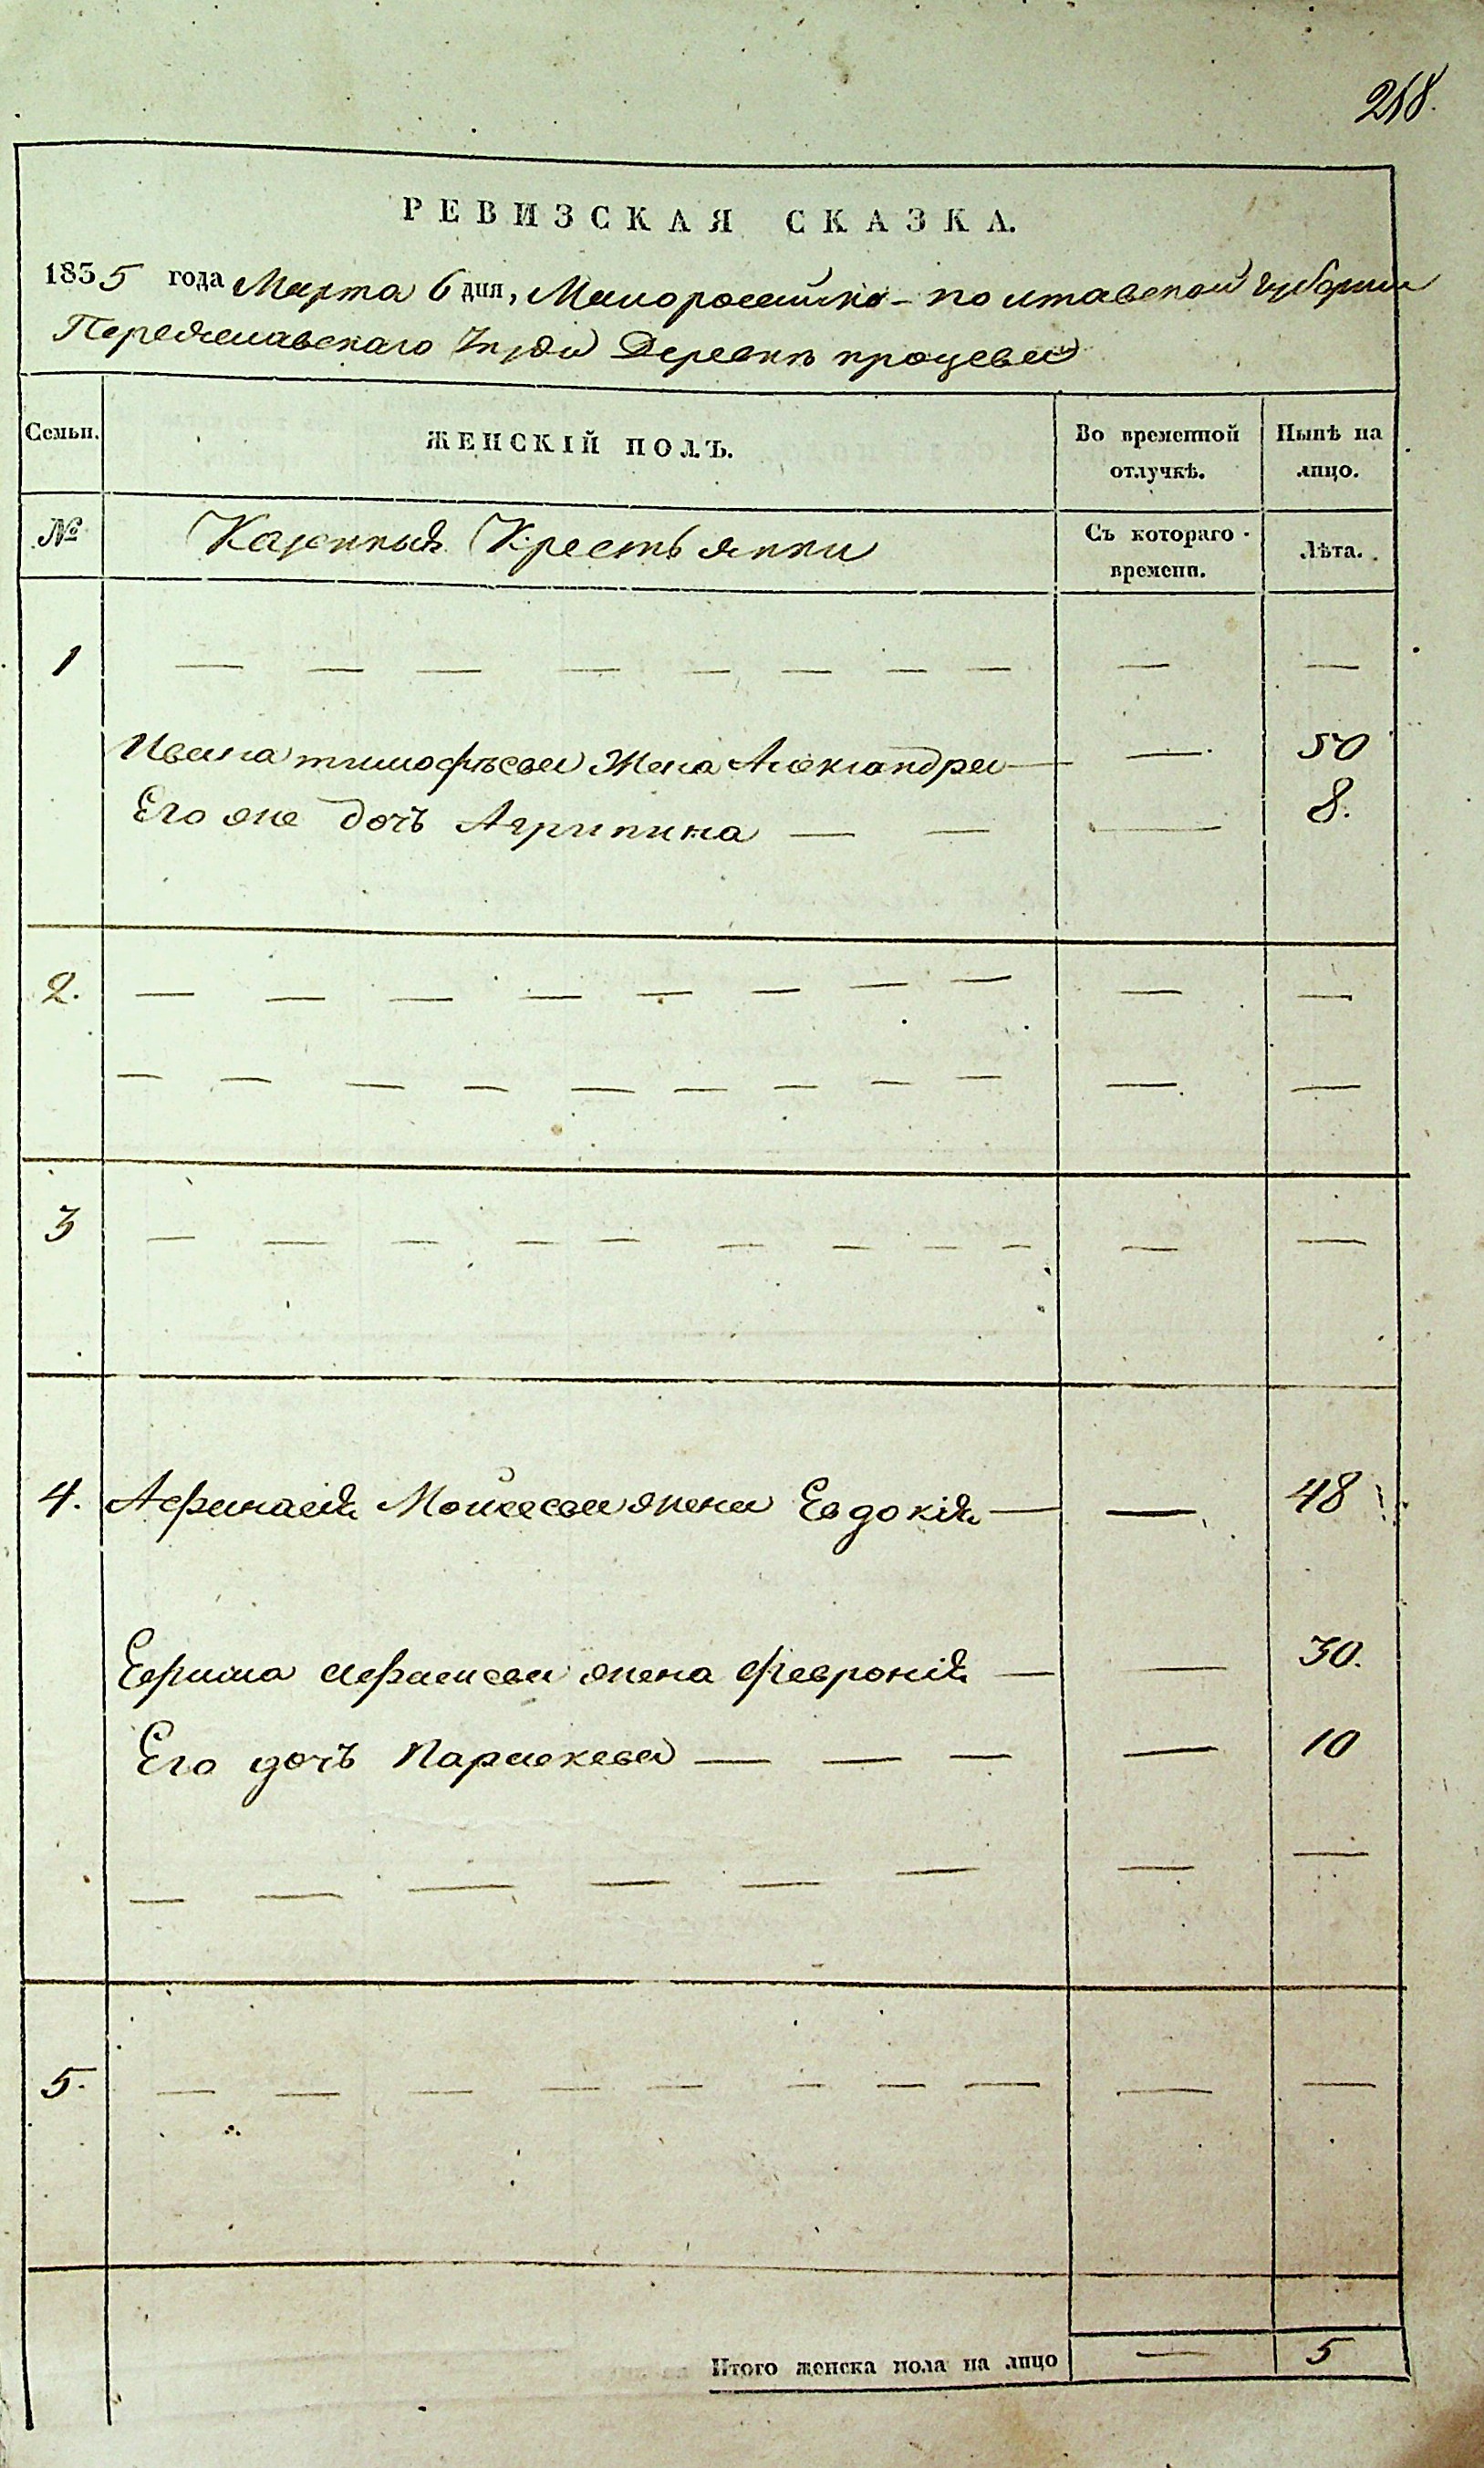 218.
РЕВИЗСКАЯ СКАЗКА.
1835 года Марта 6 дня, Малоросийско-полтавской губернии
Переяславскаго уезда Деревни процевки
Семьи.
ЖЕНСКІЙ ПОЛЪ.
Во временной отлучкѣ.
Нынѣ на лицо.
№
Казенныя Крестьянки
Съ котораго времени.
Лѣта.
1 — — — — — — — — — —
Ивана тимофѣева Жена Александра — — 50
Его же дочь Агрипина — — — 8.
2. — — — — — — — — — —
— — — — — — — — — — —
3 — — — — — — — — — — —
4. Афанасія Мойсеева жена Евдокія — — 48
Ефима Афанасева жена Феврония — — 30.
Его дочь Параскева — — — — 10
— — — — — — — —
5. — — — — — — — — — —
Итого женска пола на лицо — 5